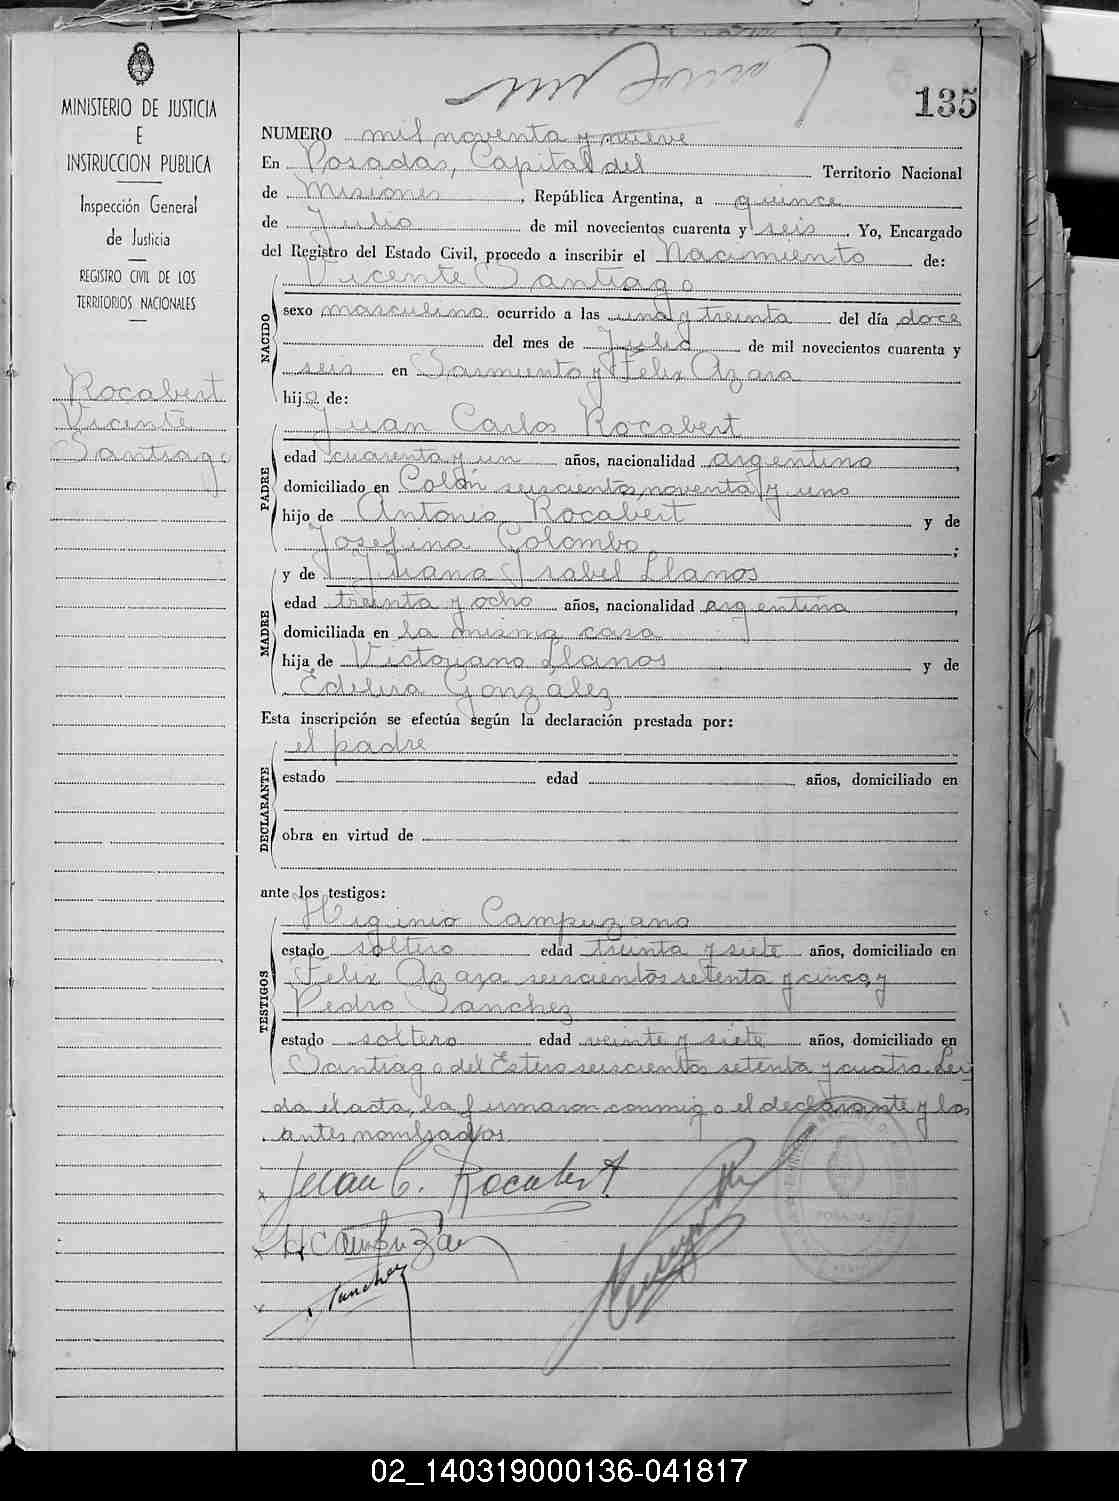 135
MINISTERIO DE JUSTICIA
E
INSTRUCCION PUBLICA
Inspección General
de Justicia
REGISTRO CIVIL DE LOS
TERRITORIOS NACIONALES
Rocabert
Vicente
Santiago
NUMERO mil noventa y nueve
En Posadas, Capital del Territorio Nacional
de Misiones, República Argentina, a quince
de Julio de mil novecientos cuarenta y seis. Yo, Encargado
del Registro del Estado Civil, procedo a inscribir el Nacimiento de:
Vicente Santiago
NACIDO
sexo masculino ocurrido a las una y treinta del día doce
del mes de Julio de mil novecientos cuarenta y
seis en Sarmiento y Felix Azara
hijo de:
Juan Carlos Rocabert
PADRE
edad cuarenta y un años, nacionalidad argentino,
domiciliado en Colón seiscientos noventa y uno
hijo de Antonio Rocabert y de
Josefina Colombo;
y de Juana Isabel Llanos
MADRE
edad treinta y ocho años, nacionalidad argentina,
domiciliada en la misma casa
hija de Victoriano Llanos y de
Edelira González
Esta inscripción se efectúa según la declaración prestada por:
el padre
DECLARANTE
estado edad años, domiciliado en
obra en virtud de
ante los testigos:
Higinio Campuzano
TESTIGOS
estado soltero edad treinta y siete años, domiciliado en
Felix Azara seiscientos setenta y cinco, y
Pedro Sanchez
estado soltero edad veinte y siete años, domiciliado en
Santiago del Estero seiscientos setenta y cuatro. Leí
da el acta, la firmaron conmigo el declarante y los
antes nombrados
Juan C. Rocabert
H Campuzano
Sanchez
02_140319000136-041817